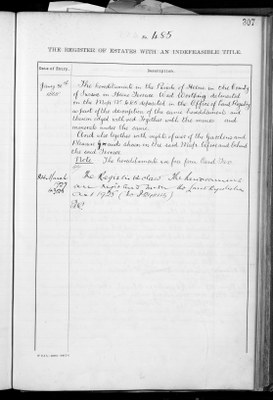 307
No. 485
THE REGISTER OF ESTATES WITH AN INDEFEASIBLE TITLE.
Date of Entry. Description.
The hereditaments in the Parish of Heene in the County
of Sussex in Heene Terrace West Worthing delineated
in the Map No. 485 deposited in the Office of Land Registry
as part of the description of the same hereditaments and
thereon edged with red Together with the mines and
minerals under the same.
And also together with rights of use of the Gardens and
Pleasure Grounds shewn on the said Map before and behind
the said Terrace
Note The hereditaments are free from Land Tax.
March
The
are the Land Registration
Act 1925